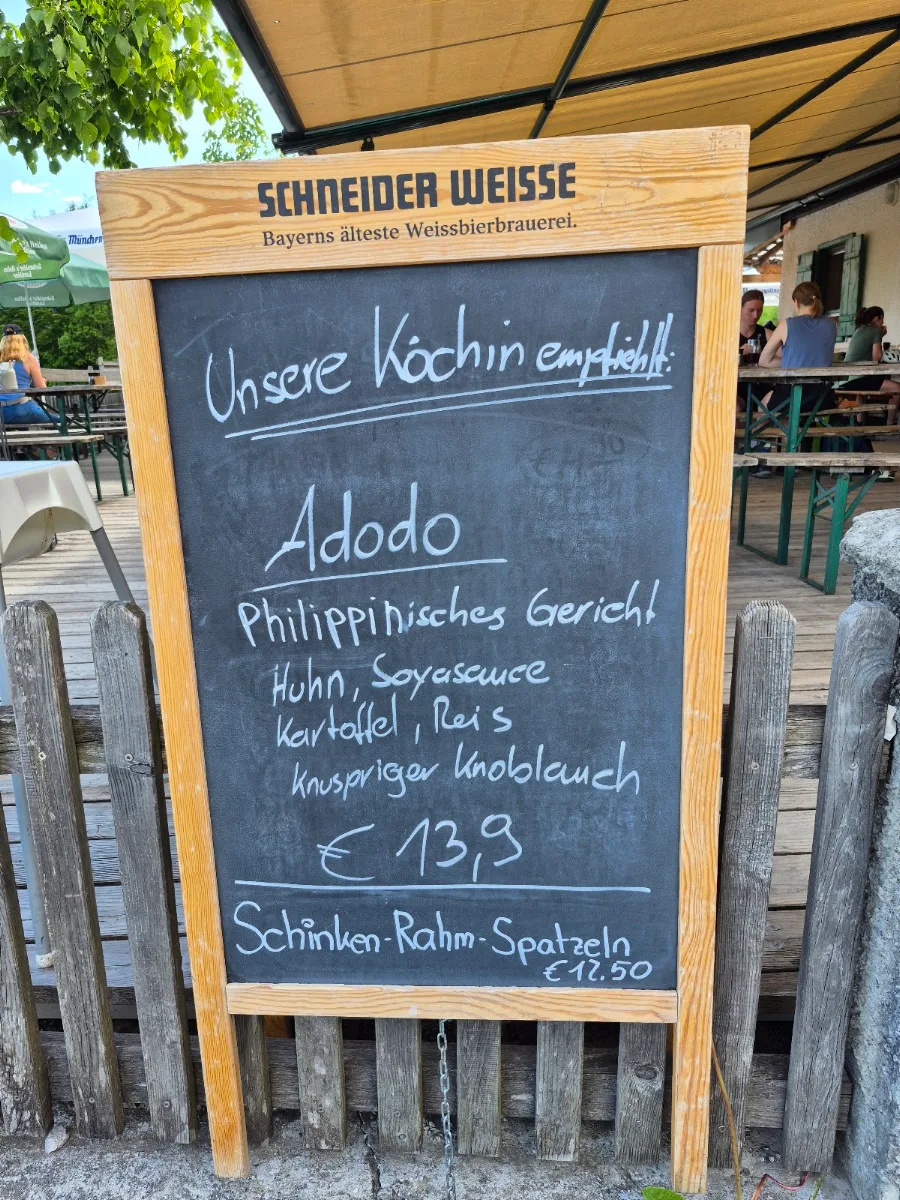 SCHNEIDER WEISSE
Bayerns älteste Weissbierbrauerei.
Unsere Köchin empfiehlt:
Adodo
Philippinisches Gericht
Huhn, Soyasauce
Kartoffel, Reis
Knuspriger Knoblauch
€ 13,9
Schinken-Rahm-Spatzeln
€12.50
Münchner